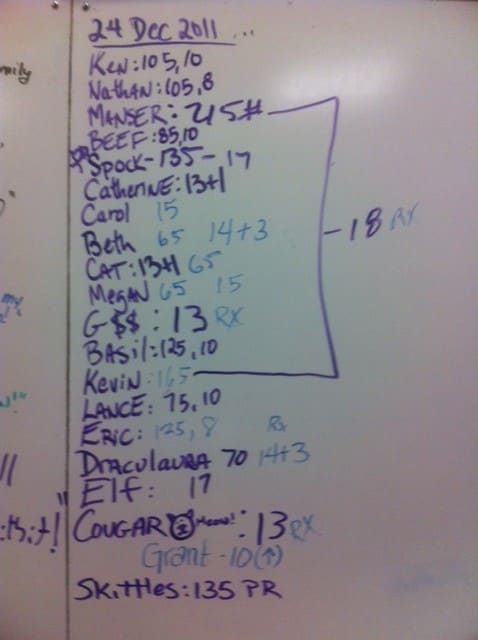 24 Dec 2011 ...
Ken: 105, 10
Nathan: 105, 8
Manser: 215#
Beef: 85, 10
Spock - 135 - 17
Catherine: 13+1
Carol 15
Beth 65 14+3
- 18 RX
Cat: 13+1 65
Megan 65 15
G$$: 13 RX
Basil: 125, 10
Kevin: 165
Lance: 75, 10
Eric: 125, 8 Rx
Draculaura 70 14+3
Elf: 17
Cougar Meow!: 13 RX
Grant - 10 (↑)
Skittles: 135 PR
mily
"